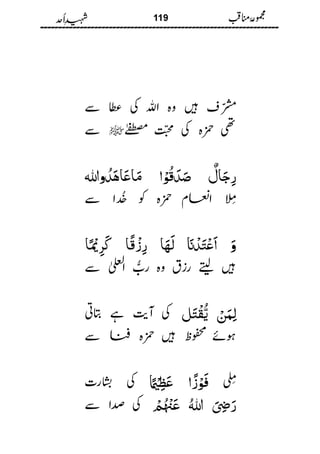 مجموعۂ مناقب 119 شہیدِ اُحد
مشرّف ہیں وہ اللہ کی عطا سے
تھی حمزہ کی محبّت مصطفےٰ ﷺ سے
رِجَالٌ صَدَقُوْا مَا عَاهَدُوا الله
مِلا انعام حمزہ کو خُدا سے
وَ اَعْتَدْنَا لَهَا رِزْقًا كَرِيْمًا
ہیں لیتے رزق وہ ربُّ العلیٰ سے
لِمَنْ يُّقْتَلُ کی آیت ہے بتاتی
ہوئے محفوظ ہیں حمزہ فنا سے
مِلی فَوْزًا عَظِيْمًا کی بشارت
رَضِيَ اللهُ عَنْهُمْ کی صدا سے